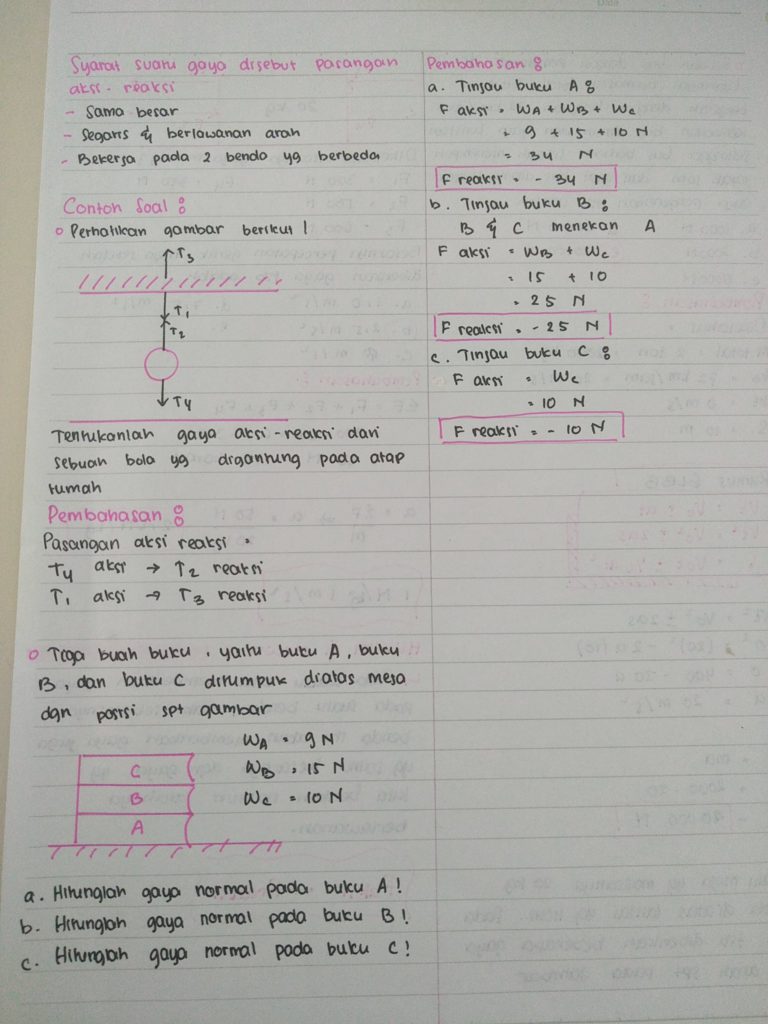 Syarat suatu gaya disebut pasangan
aksi - reaksi
- Sama besar
- Segaris & berlawanan arah
- Bekerja pada 2 benda yg berbeda
Contoh Soal :
Perhatikan gambar berikut !
T3
T1
T2
T4
Tentukanlah gaya aksi-reaksi dari
sebuah bola yg digantung pada atap
rumah
Pembahasan :
Pasangan aksi reaksi =
T4 aksi → T2 reaksi
T1 aksi → T3 reaksi
Tiga buah buku, yaitu buku A, buku
B, dan buku C ditumpuk diatas meja
dgn posisi spt gambar
WA = 9 N
C WB = 15 N
B WC = 10 N
A
a. Hitunglah gaya normal pada buku A!
b. Hitunglah gaya normal pada buku B!
c. Hitunglah gaya normal pada buku C!
Pembahasan :
a. Tinjau buku A :
F aksi = WA + WB + WC
= 9 + 15 + 10 N
= 34 N
F reaksi = - 34 N
b. Tinjau buku B :
B & C menekan A
F aksi = WB + WC
= 15 + 10
= 25 N
F reaksi = - 25 N
c. Tinjau buku C :
F aksi = WC
= 10 N
F reaksi = - 10 N